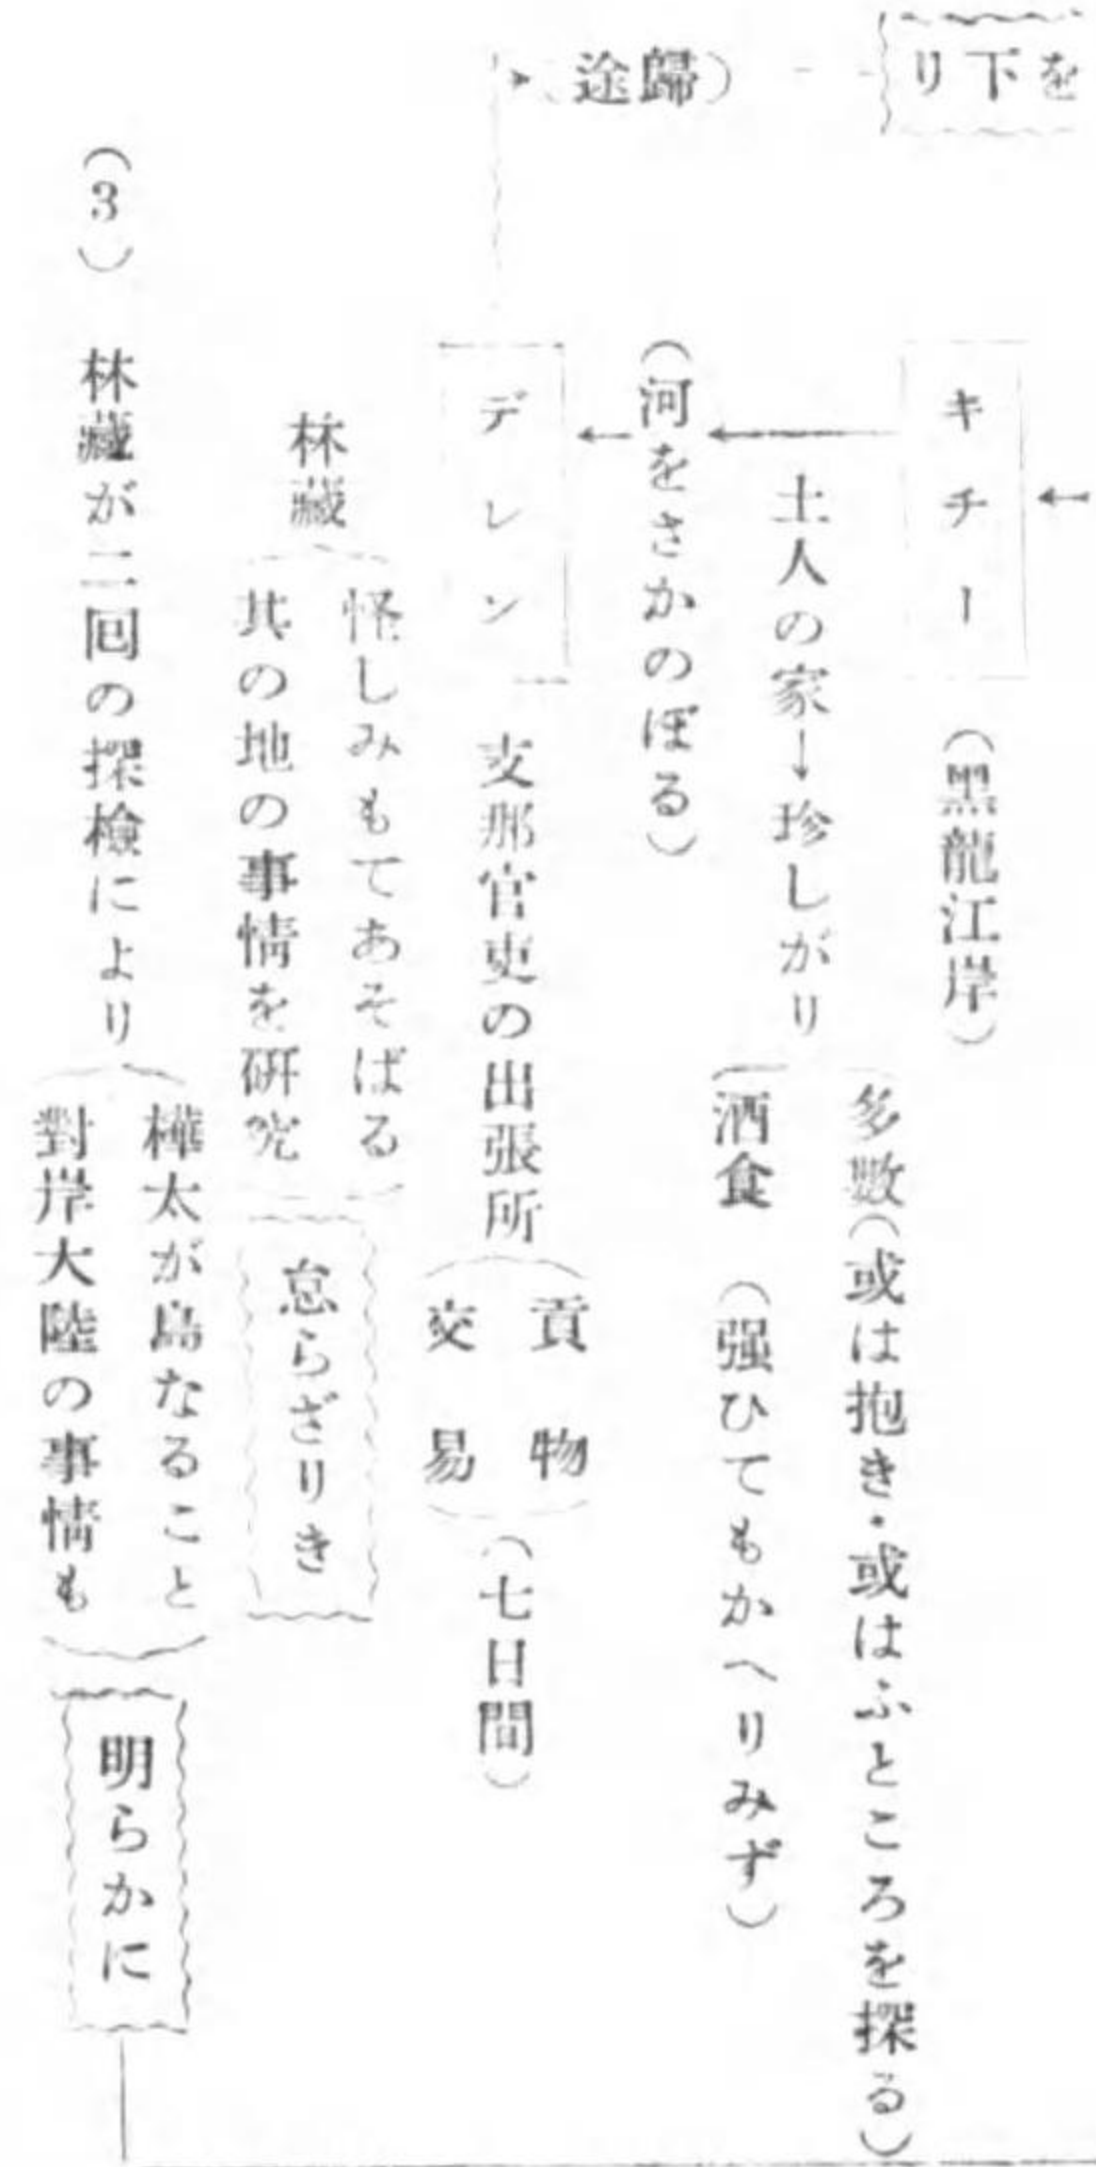 を下り
(歸途)
キチー
(黑龍江岸)
土人の家→珍しがり
多數(或は抱き・或はふところを探る)
酒食 (强ひてもかへりみず)
(河をさかのぼる)
デレン
支那官吏の出張所
貢物
交易
(七日間)
林藏
怪しみもてあそばる
其の地の事情を研究
怠らざりき
(3) 林藏が二囘の探檢により
樺太が島なること
對岸大陸の事情も
明らかに